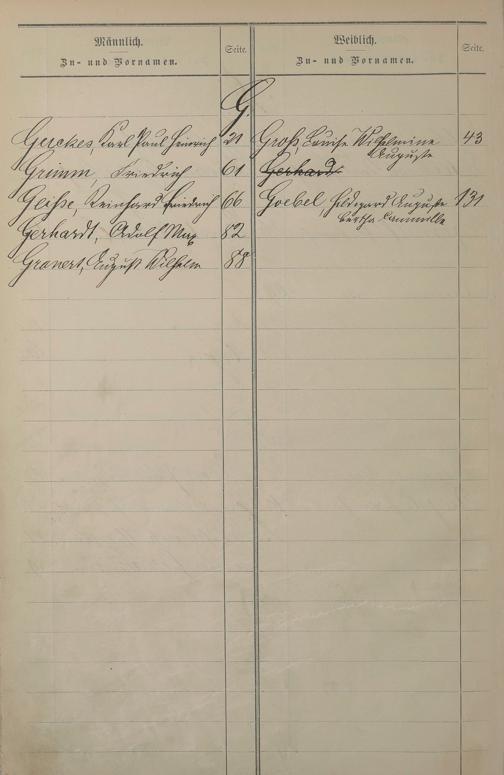 Männlich.
Zu- und Vornamen.
Seite.
Weiblich.
Zu- und Vornamen.
Seite.
G.
Gerckes, Karl Paul Heinrich 21
Grimm, Friedrich 61
Geiße, Reinhard Friedrich 66
Gerhardt, Adolf Max 82
Granert, August Wilhelm 88
Groß, Louise Wilhelmine 43
Auguste
Gerhardt
Goebel, Hildegard Auguste 131
Bertha